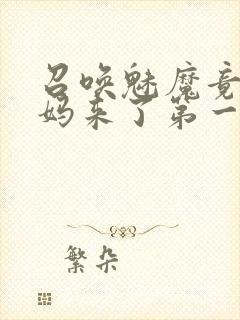 召唤魅魔竟
妈来了第一
繁朵